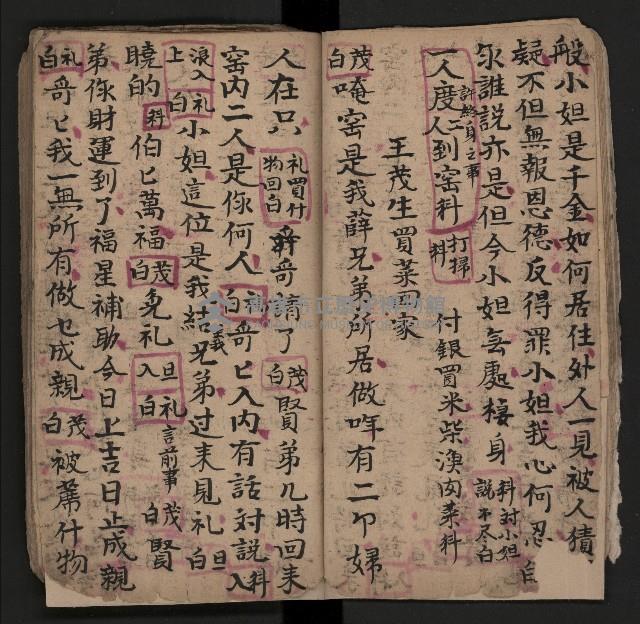 般小妲是千金如何居住外人一見被人猜
疑不但無報恩德反得罪小妲我心何忍
你誰說亦是但今小妲無處棲身 料討小妲說不尽白
一人度 許終身之事 二人到窑料 打掃料 付銀買米柴澳肉菜料
王茂生買菜回家
茂白 唵窑是我薛兄弟所居做咩有二卩婦
人在只 礼買什物回白 哥済了 茂白 賢弟几時回来
窑内二人是你何人 白 哥匕入内有話对説 入料
浪入上 礼白 小妲這位是我結義兄弟过来見礼 旦白
曉的 料 伯匕萬福 茂白 免礼 旦入 礼白 言前事 茂白 賢
弟你財運到了福星補助今日上吉日止成親
礼白 哥匕我一無所有做乜成親 茂白 被蓆什物